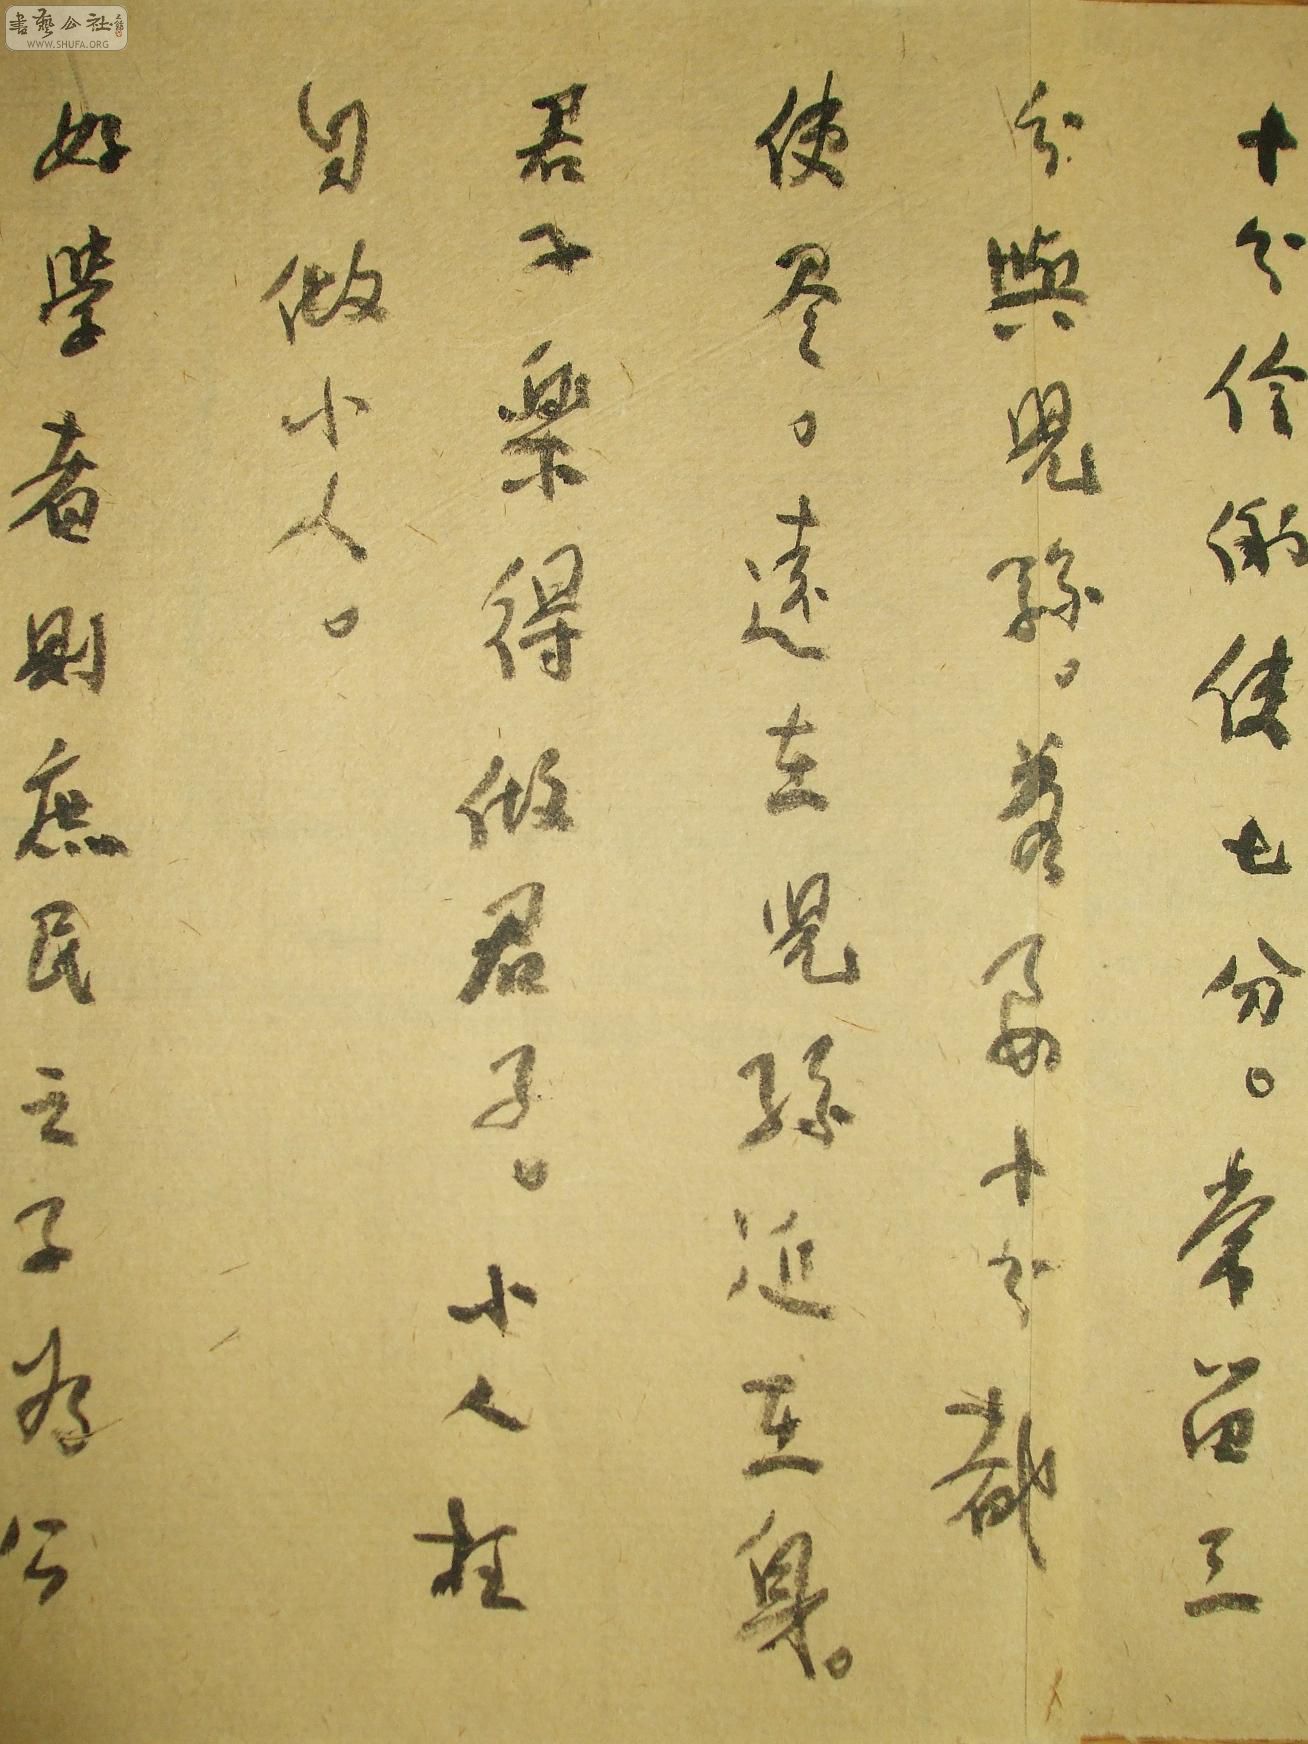 十分伶俐使七分。常留三
分與兒孫。若要十分都
使尽。遠在兒孫近在身。
君子樂得做君子。小人枉
自做小人。
好學者則庶民之子為公
書藝公社
WWW.SHUFA.ORG